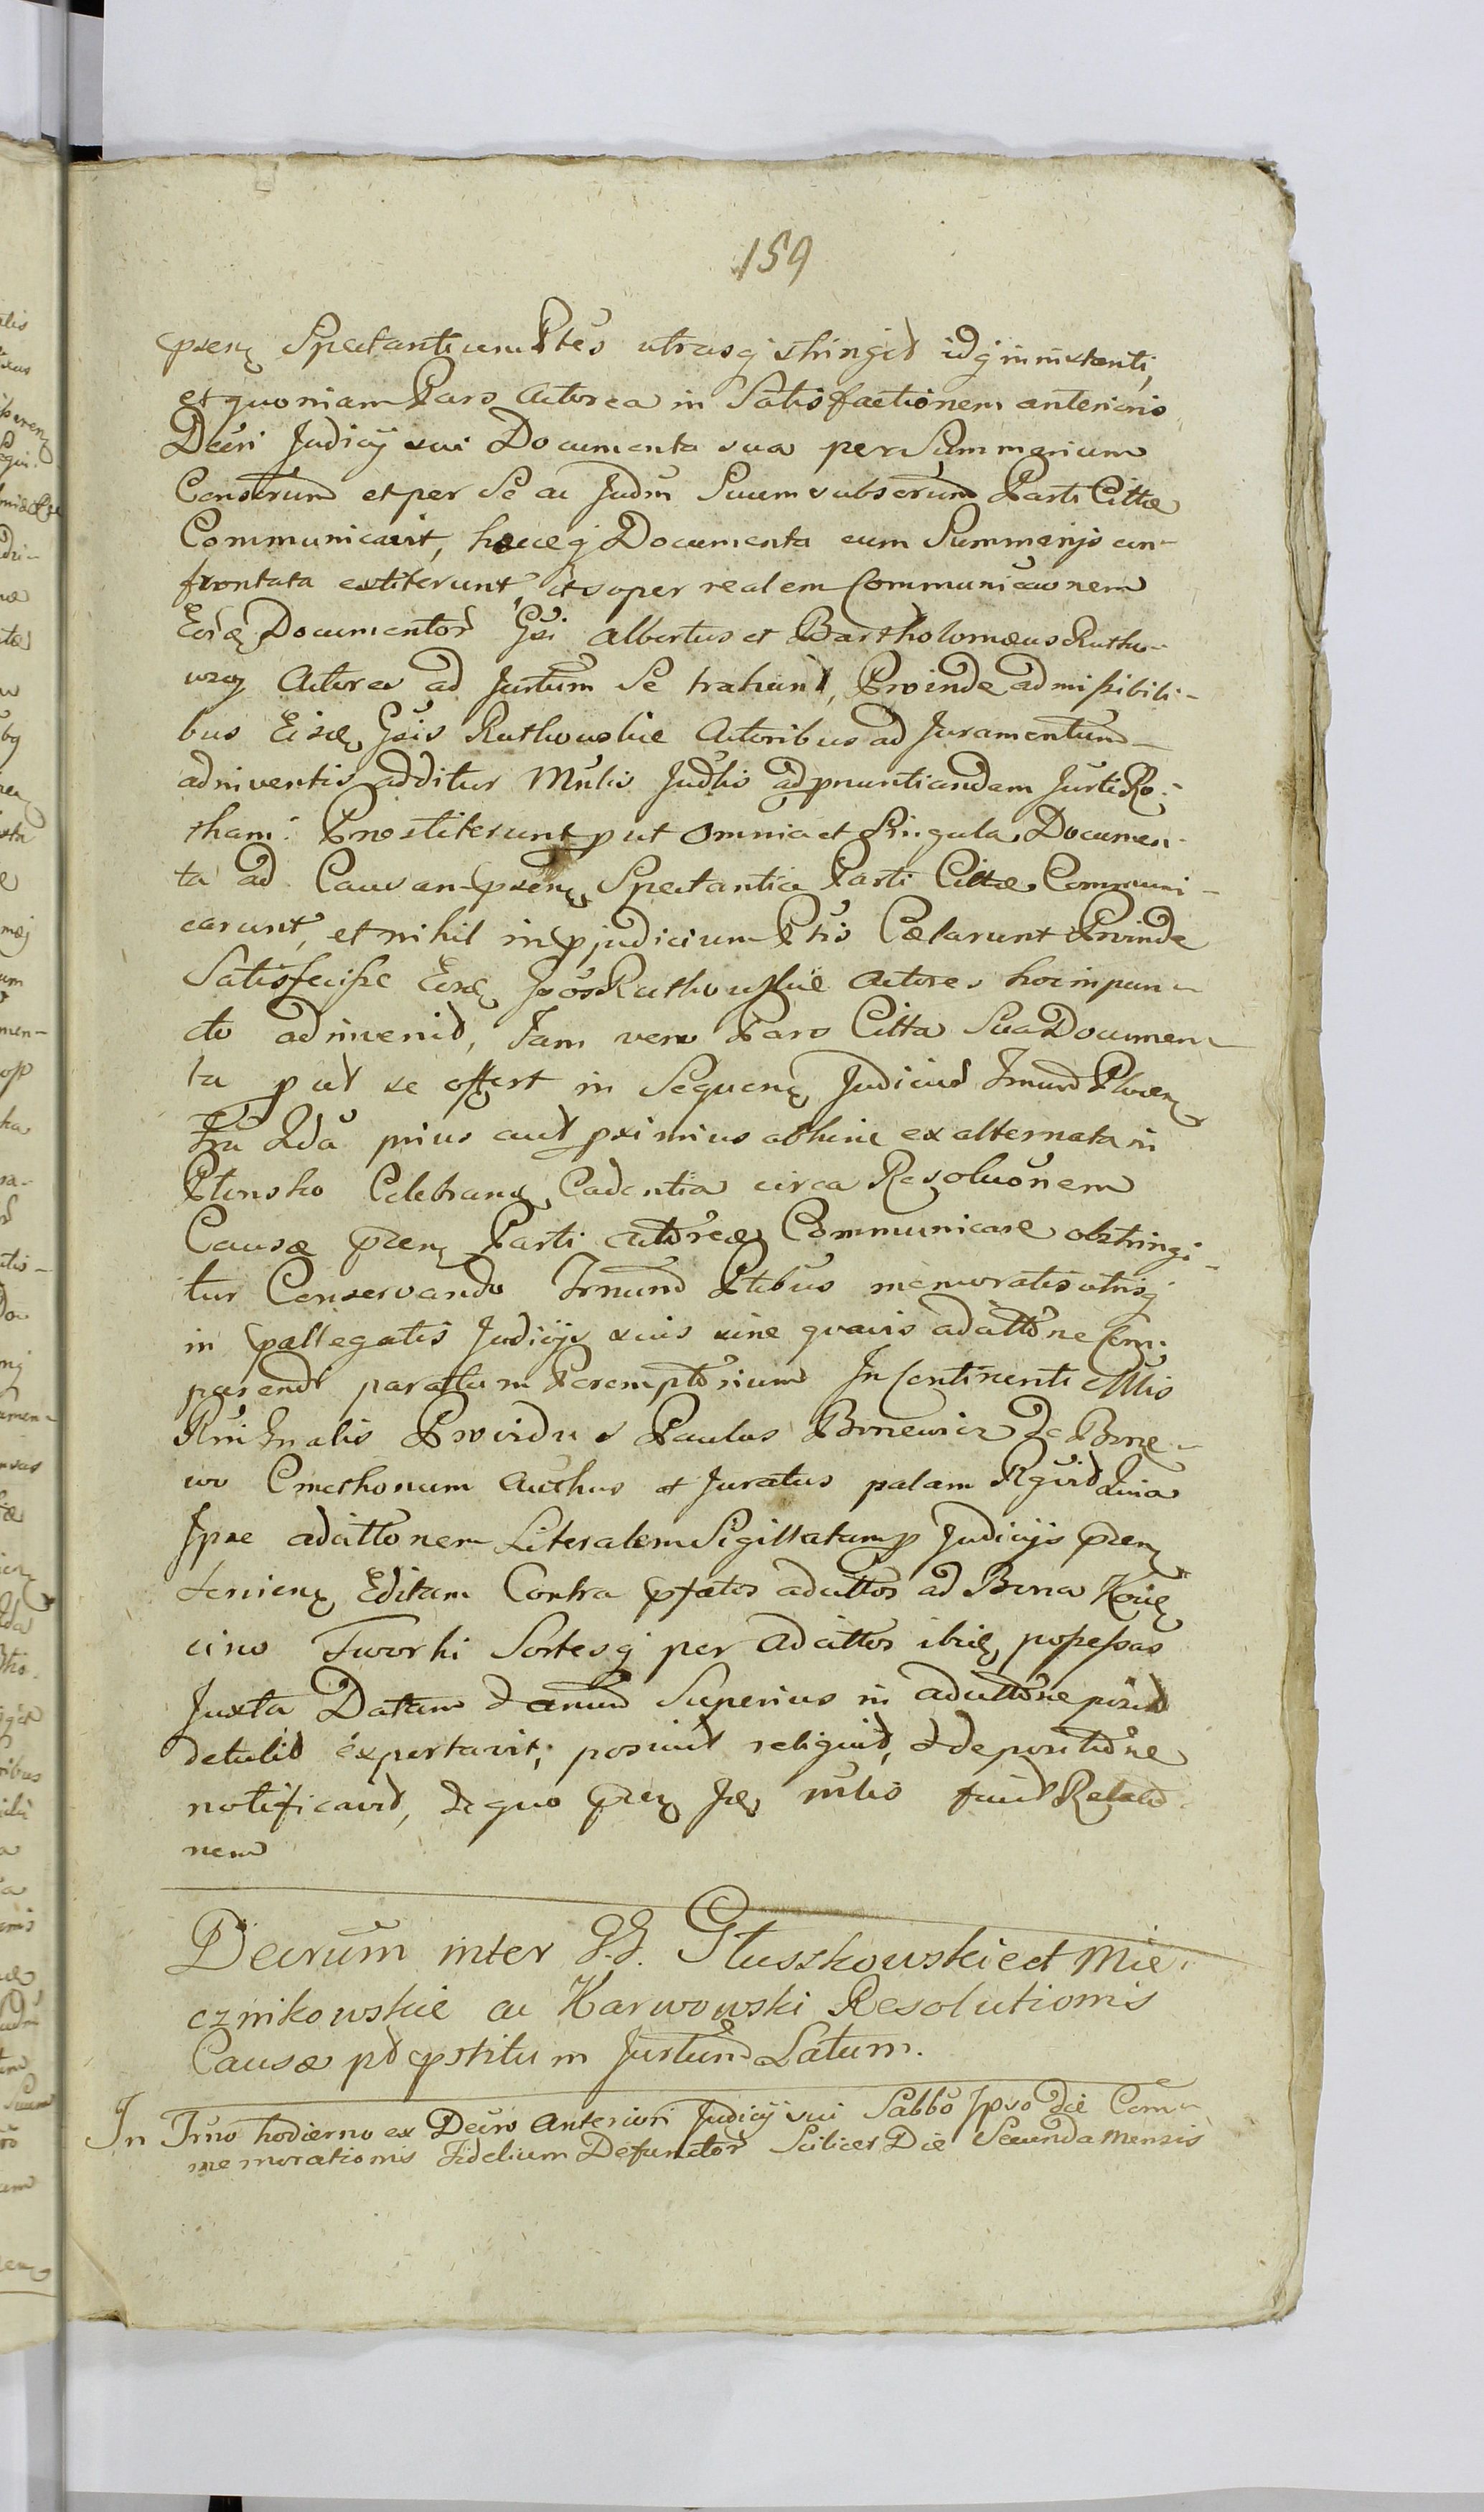 159
præsen. Spectantium Ptes utrasq stringit idq in instanti,
et quoniam Pars Actorea in Satisfactionem anterioris
Decri Judicij sui Documenta sua per Summarium
Conscrum et per Se ac Judm Suum subscrum Parti Cittæ
Communicavit, hæceq Documenta cum Summarijs con-
frontata extiterunt, et super realem Communicaonem
Eord Documentor Gsi Albertus et Bartholomæus Rutko-
wscy Actores ad Jurtum Se trahunt, Proinde admissibili-
bus Eisd Gsis Rutkowskie Actoribus ad Juramentum
adinventis additur Mnlis Judlis ad pnuntiandam Jurti Ro-
tham: Prestiterunt put Omnia et Singula Documen-
ta ad Causam præsen Spectantia Parti Cittæ Communi-
carunt, et nihil in pjudicium Ptis Cælarunt Proinde
Satisfecisse Eosd Gsos Rutkowskie Actores hoc in pun-
cto adinvenit, Jam vero Pars Citta Sua Documen-
ta put se offert in Sequen Judicior Trnum Plocen
Tra Qda prius aut pximius abhinc ex alternata in
Plonsko Celebran Cadentia circa Resoluonem
Causæ præsen Parti Actoreæ Communicare obstringi-
tur Conservando Trnum Ptibus memoratis utrisq
in præallegatis Judicijs suis sine quavis adcittone Com-
parendi paratum Peremptorium In Continenti Mlis
Rni Gnalis Providus Paulus Bonewicz de Bone-
wo Cmethonum Authus et Juratus palam Rgvit Quia
Ipse adcittonem Literalem Sigillatam p Judicijs præsen
Ternien Editam Contra præfatos adcittos ad Bona Koni
cino Tworki Sortesq per adcittos ibid possessas
Juxta Datam & annum Superius in adcittone posit
detulit expertavit, posuit reliquit, & de positione
notificavit, de quo præsen Jcs mlis fecit Relatio
nem
Decrum inter G.G. Głuszkowskie et Mie-
cznikowskie ac Karwowski Resolutionis
Causæ pt pstitum Jurtum Latum.
In Trno hodierno ex Decro Anteriori Judicij sui Sabbo Ipso die Com-
memorationis Fidelium Defunctor Scilicet Die Secunda Mensis